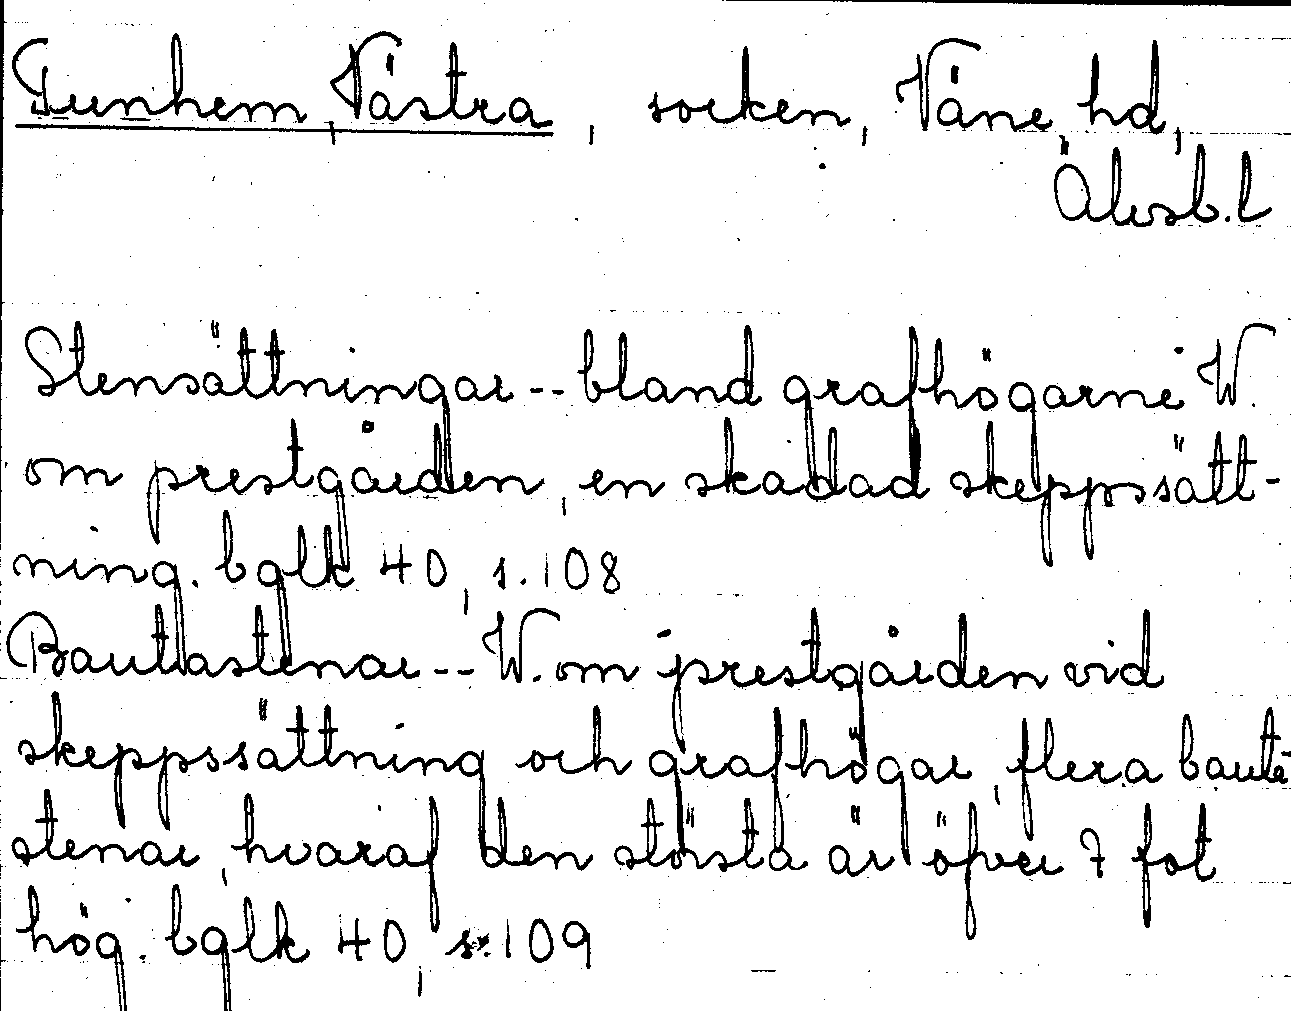 Tunhem, Västra, socken, Väne hd,
Älvsb. l
Stensättningar -- bland grafhögarne W.
om prestgården, en skadad skeppssätt-
ning. bglk 40, s. 108
Bautastenar -- W. om prestgården vid
skeppssättning och grafhögar, flera bauta-
stenar, hvaraf den största är öfver 7 fot
hög. bglk 40, s. 109